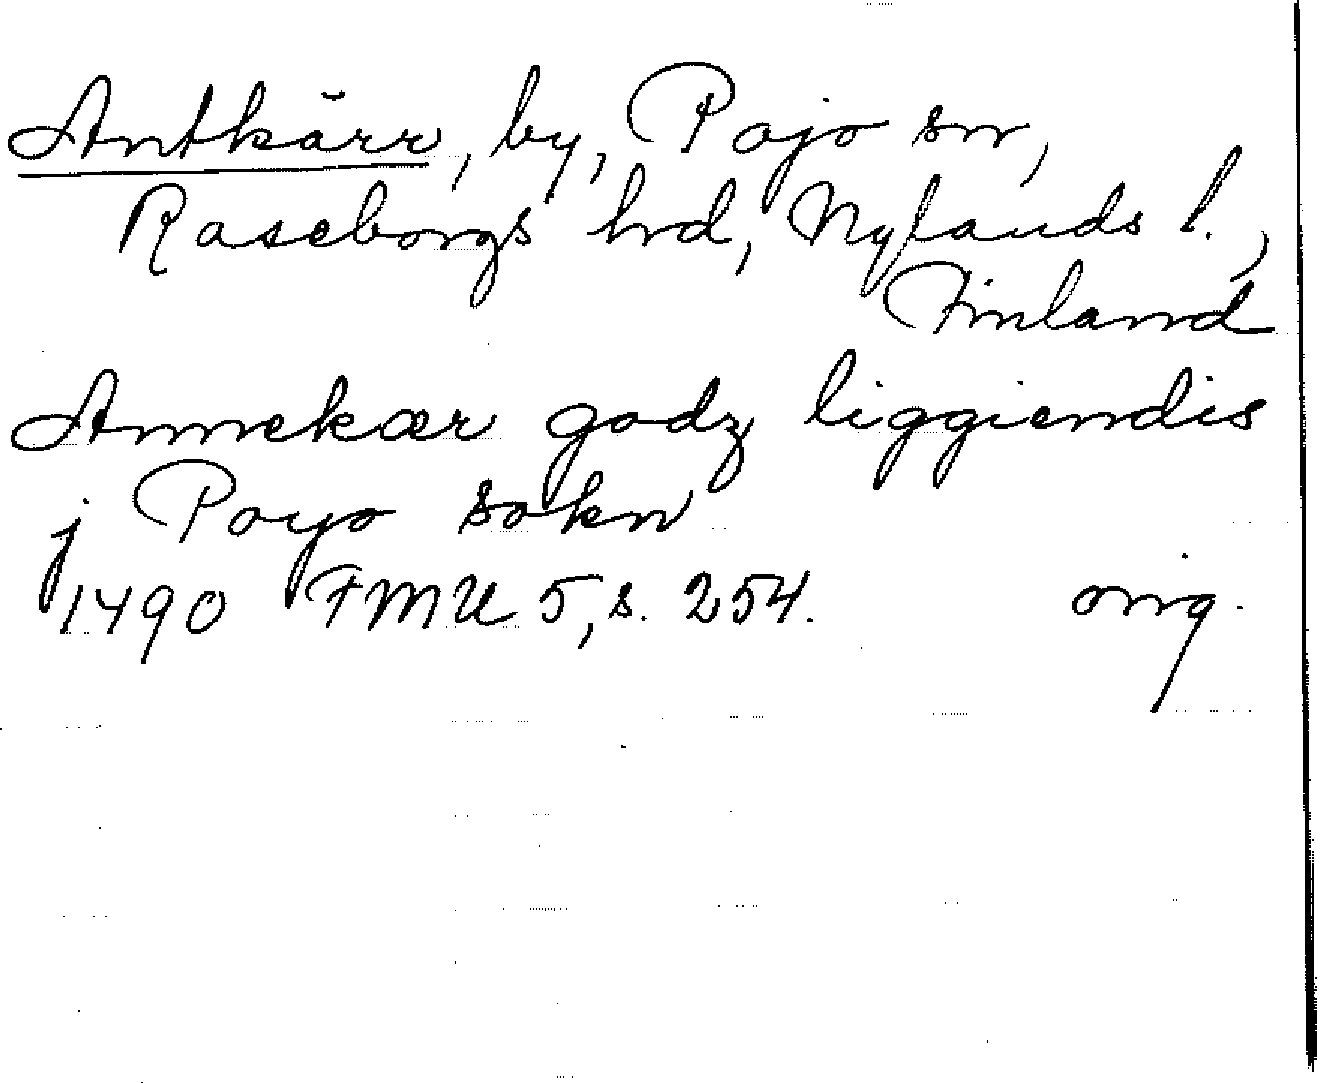 Antkärr, by, Pojo sn,
Raseborgs hrd, Nylands l.,
Finland
Annekær godz liggiendis
j Poyo sokn
1490 FMU 5, s. 254. orig.